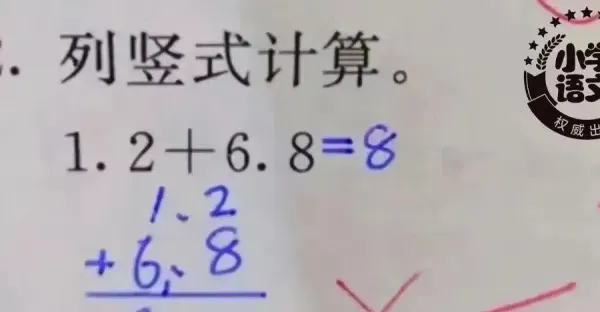 列竖式计算。
1.2+6.8=8
1.2
+6.8
小学
语文
权威出